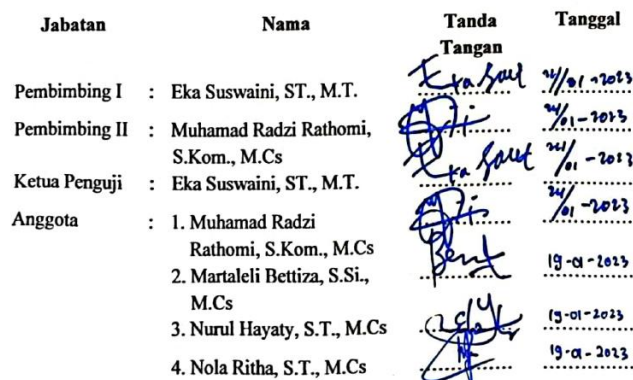 Jabatan Nama Tanda Tangan Tanggal
Pembimbing I : Eka Suswaini, ST., M.T. /01-2023
Pembimbing II : Muhamad Radzi Rathomi, /01-2023
S.Kom., M.Cs
Ketua Penguji : Eka Suswaini, ST., M.T. /01-2023
Anggota : 1. Muhamad Radzi /01-2023
Rathomi, S.Kom., M.Cs
2. Martaleli Bettiza, S.Si., 19-01-2023
M.Cs
3. Nurul Hayaty, S.T., M.Cs 19-01-2023
4. Nola Ritha, S.T., M.Cs 19-01-2023